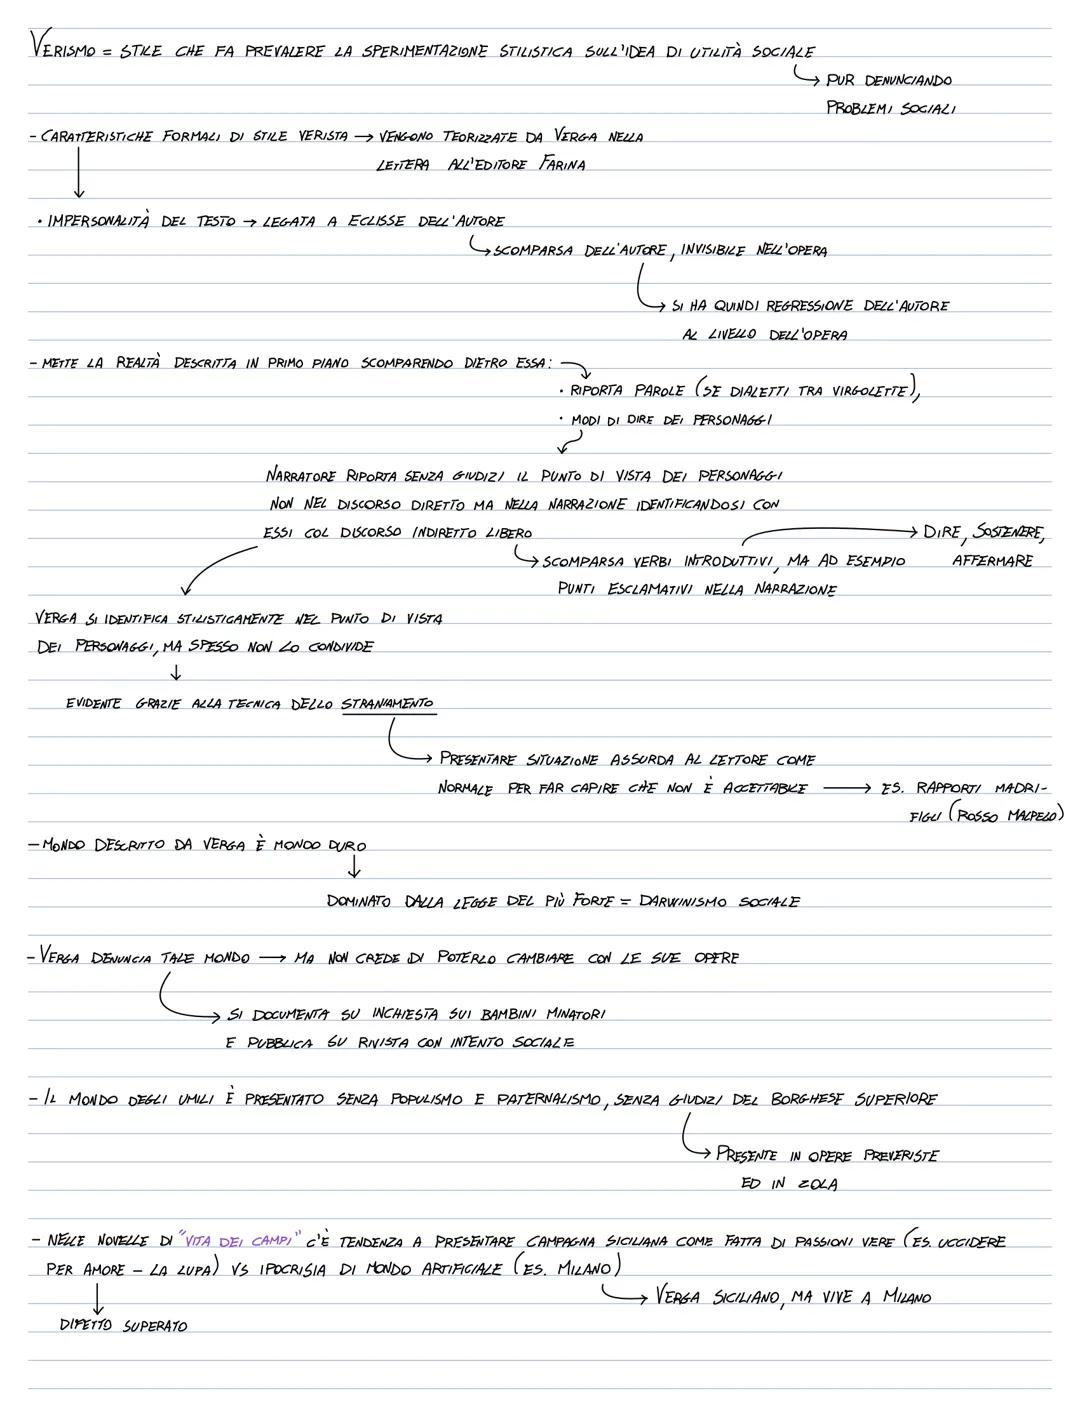 VERISMO = STILE CHE FA PREVALERE LA SPERIMENTAZIONE STILISTICA SULL'IDEA DI UTILITÀ SOCIALE
→ PUR DENUNCIANDO
PROBLEMI SOCIALI
- CARATTERISTICHE FORMALI DI STILE VERISTA → VENGONO TEORIZZATE DA VERGA NELLA
LETTERA ALL'EDITORE FARINA
• IMPERSONALITÀ DEL TESTO → LEGATA A ECLISSE DELL'AUTORE
→ SCOMPARSA DELL'AUTORE, INVISIBILE NELL'OPERA
→ SI HA QUINDI REGRESSIONE DELL'AUTORE
AL LIVELLO DELL'OPERA
- METTE LA REALTÀ DESCRITTA IN PRIMO PIANO SCOMPARENDO DIETRO ESSA:
• RIPORTA PAROLE (SE DIALETTI TRA VIRGOLETTE),
• MODI DI DIRE DEI PERSONAGGI
NARRATORE RIPORTA SENZA GIUDIZI IL PUNTO DI VISTA DEI PERSONAGGI
NON NEL DISCORSO DIRETTO MA NELLA NARRAZIONE IDENTIFICANDOSI CON
ESSI COL DISCORSO INDIRETTO LIBERO → DIRE, SOSTENERE,
→ SCOMPARSA VERBI INTRODUTTIVI, MA AD ESEMPIO AFFERMARE
PUNTI ESCLAMATIVI NELLA NARRAZIONE
VERGA SI IDENTIFICA STILISTICAMENTE NEL PUNTO DI VISTA
DEI PERSONAGGI, MA SPESSO NON LO CONDIVIDE
EVIDENTE GRAZIE ALLA TECNICA DELLO STRANIAMENTO
→ PRESENTARE SITUAZIONE ASSURDA AL LETTORE COME
NORMALE PER FAR CAPIRE CHE NON È ACCETTABILE → ES. RAPPORTI MADRI-
FIGLI (ROSSO MALPELO)
- MONDO DESCRITTO DA VERGA È MONDO DURO
DOMINATO DALLA LEGGE DEL PIÙ FORTE = DARWINISMO SOCIALE
- VERGA DENUNCIA TALE MONDO → MA NON CREDE DI POTERLO CAMBIARE CON LE SUE OPERE
→ SI DOCUMENTA SU INCHIESTA SUI BAMBINI MINATORI
E PUBBLICA SU RIVISTA CON INTENTO SOCIALE
- IL MONDO DEGLI UMILI È PRESENTATO SENZA POPULISMO E PATERNALISMO, SENZA GIUDIZI DEL BORGHESE SUPERIORE
→ PRESENTE IN OPERE PREVERISTE
ED IN ZOLA
- NELLE NOVELLE DI "VITA DEI CAMPI" C'È TENDENZA A PRESENTARE CAMPAGNA SICILIANA COME FATTA DI PASSIONI VERE (ES. UCCIDERE
PER AMORE - LA LUPA) VS IPOCRISIA DI MONDO ARTIFICIALE (ES. MILANO)
→ VERGA SICILIANO, MA VIVE A MILANO
DIFETTO SUPERATO